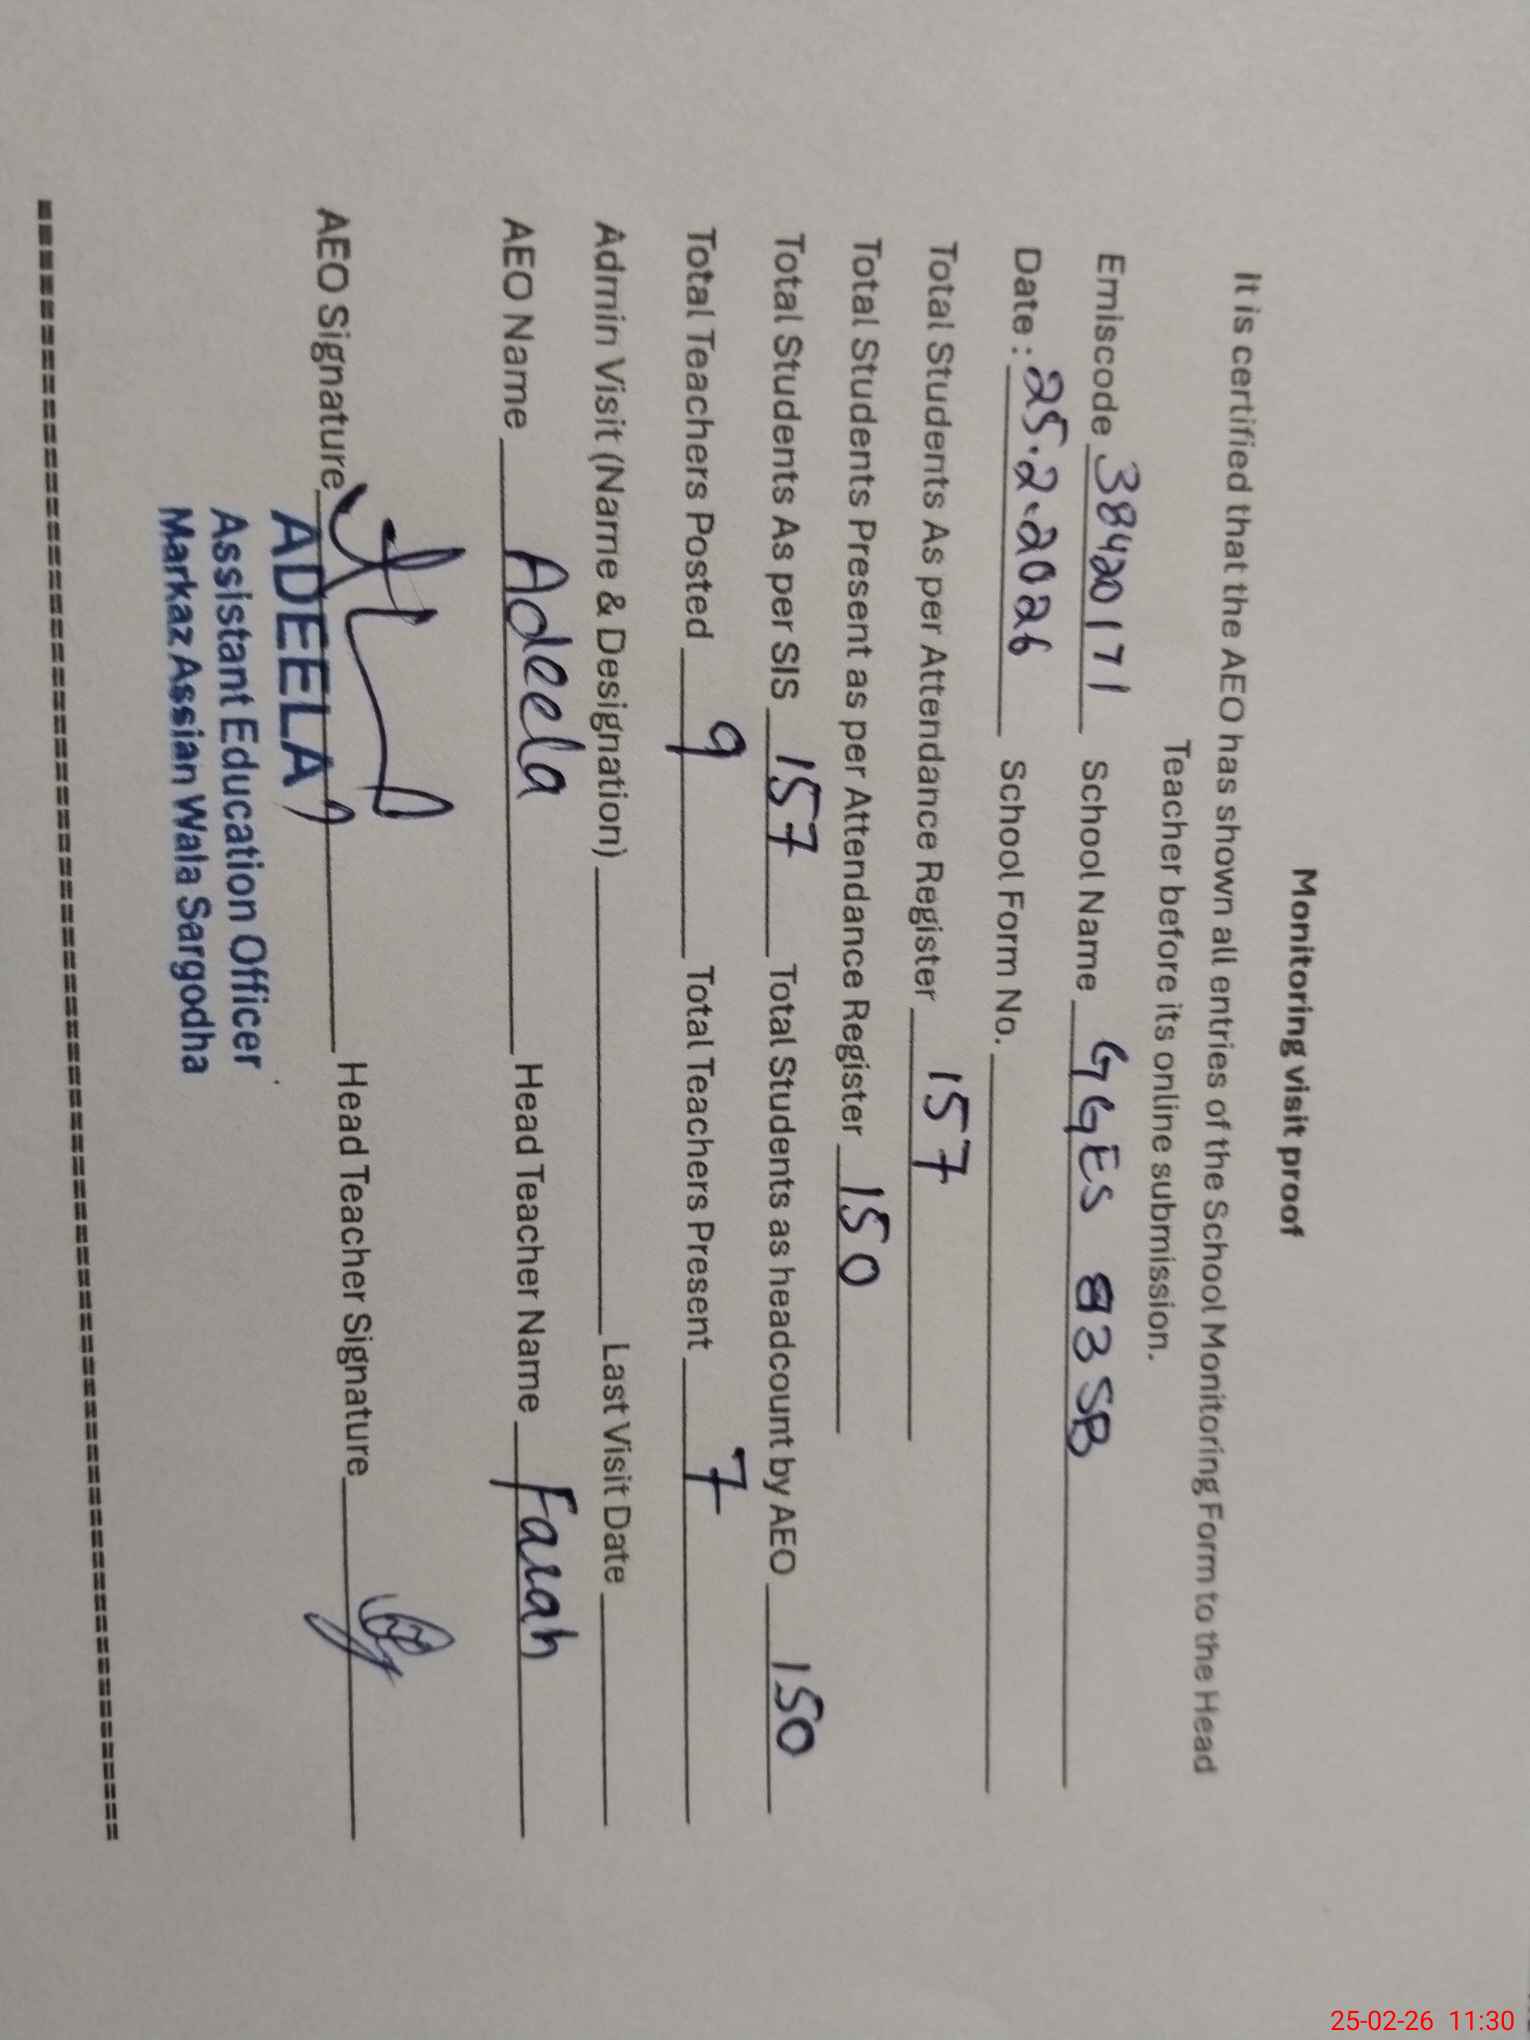 Monitoring visit proof
It is certified that the AEO has shown all entries of the School Monitoring Form to the Head
Teacher before its online submission.
Emiscode 38420171 School Name GGES 83 SB
Date: 25.2.2026 School Form No.
Total Students As per Attendance Register 157
Total Students Present as per Attendance Register 150
Total Students As per SIS 157 Total Students as headcount by AEO 150
Total Teachers Posted 9 Total Teachers Present 7
Admin Visit (Name & Designation) Last Visit Date
AEO Name Adeela Head Teacher Name Farah
AEO Signature Head Teacher Signature
ADEELA
Assistant Education Officer
Markaz Assian Wala Sargodha
25-02-26 11:30